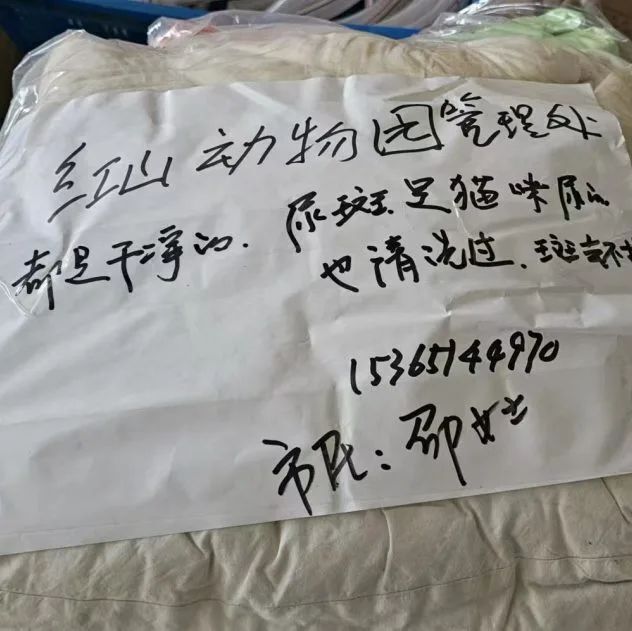 红山动物园管理处
都是干净的. 尿斑是猫咪尿的
也清洗过.斑点不
15365144970
市民:邵女士